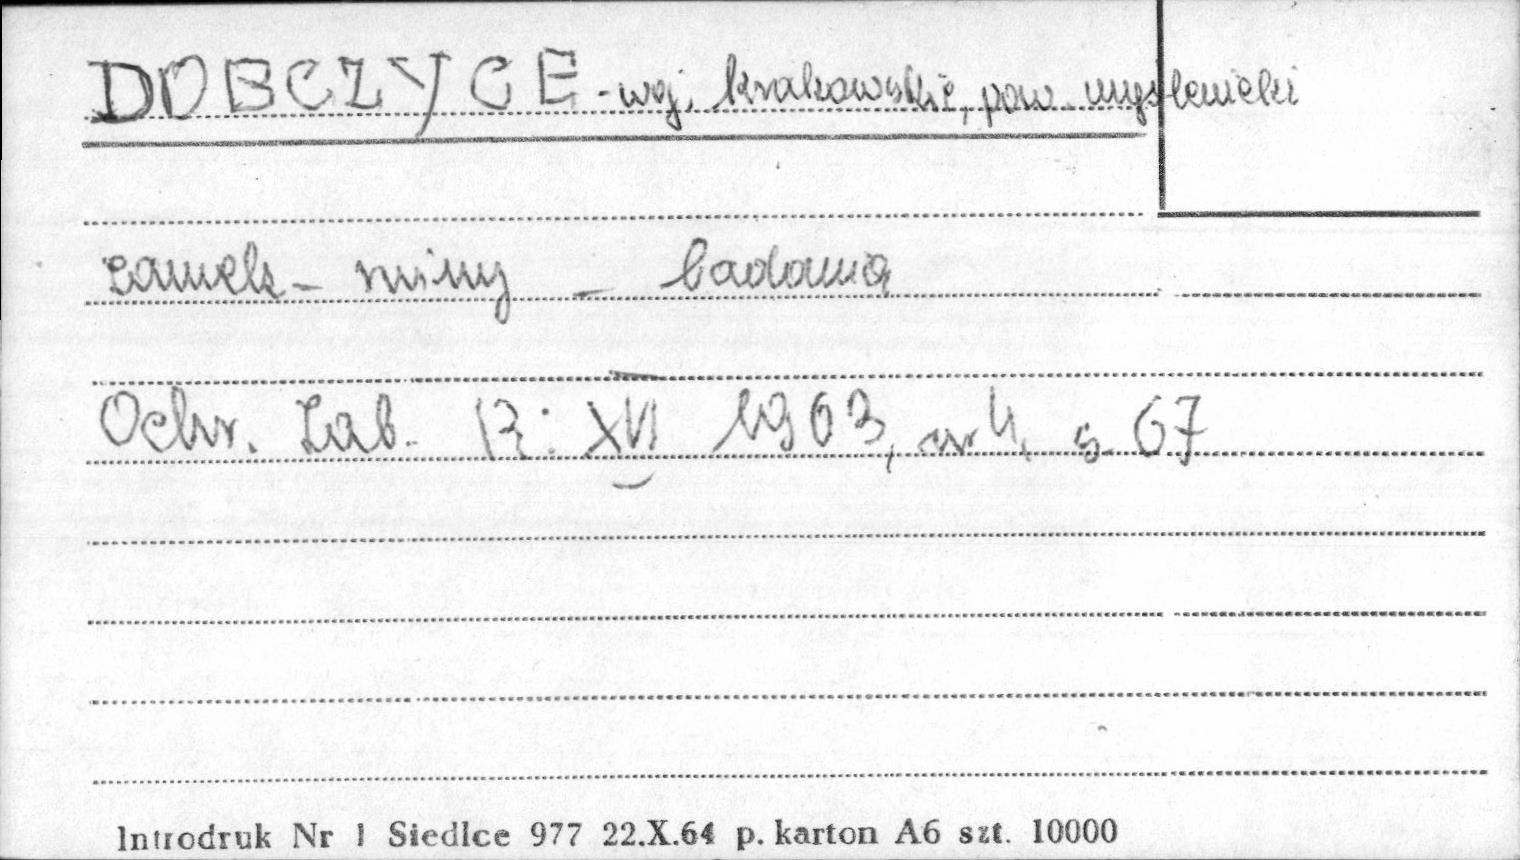 DOBCZYCE - woj. krakowskie, pow. myślenicki
zamek - ruiny - badania
Ochr. Zab. R: XVI 1963, nr 4, s. 67
Introdruk Nr 1 Siedlce 977 22.X.64 p. karton A6 szt. 10000